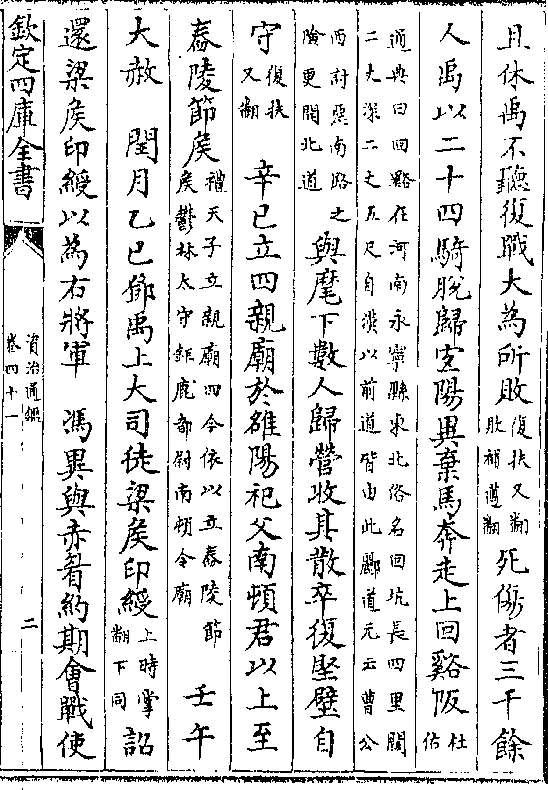 且休禹不聽復戰大為所敗復扶又翻敗補邁翻死傷者三千餘
人禹以二十四騎脫歸宜陽異棄馬奔走上回谿阪杜佑
通典曰回谿在河南永寧縣東北俗名回坑長四里闊
二丈深二丈五尺自漢以前道皆由此酈道元云曹公
西討惡南路之險更開北道與麾下數人歸營收其散卒復堅壁自
守復扶又翻 辛巳立四親廟於雒陽祀父南頓君以上至
舂陵節侯禮天子立親廟四今依以立舂陵節侯鬱林太守鉅鹿都尉南頓令廟 壬午
大赦 閏月乙巳鄧禹上大司徒梁侯印綬上時掌翻下同詔
還梁侯印綬以為右將軍 馮異與赤眉約期會戰使
欽定四庫全書
資治通鑑
卷四十一
二